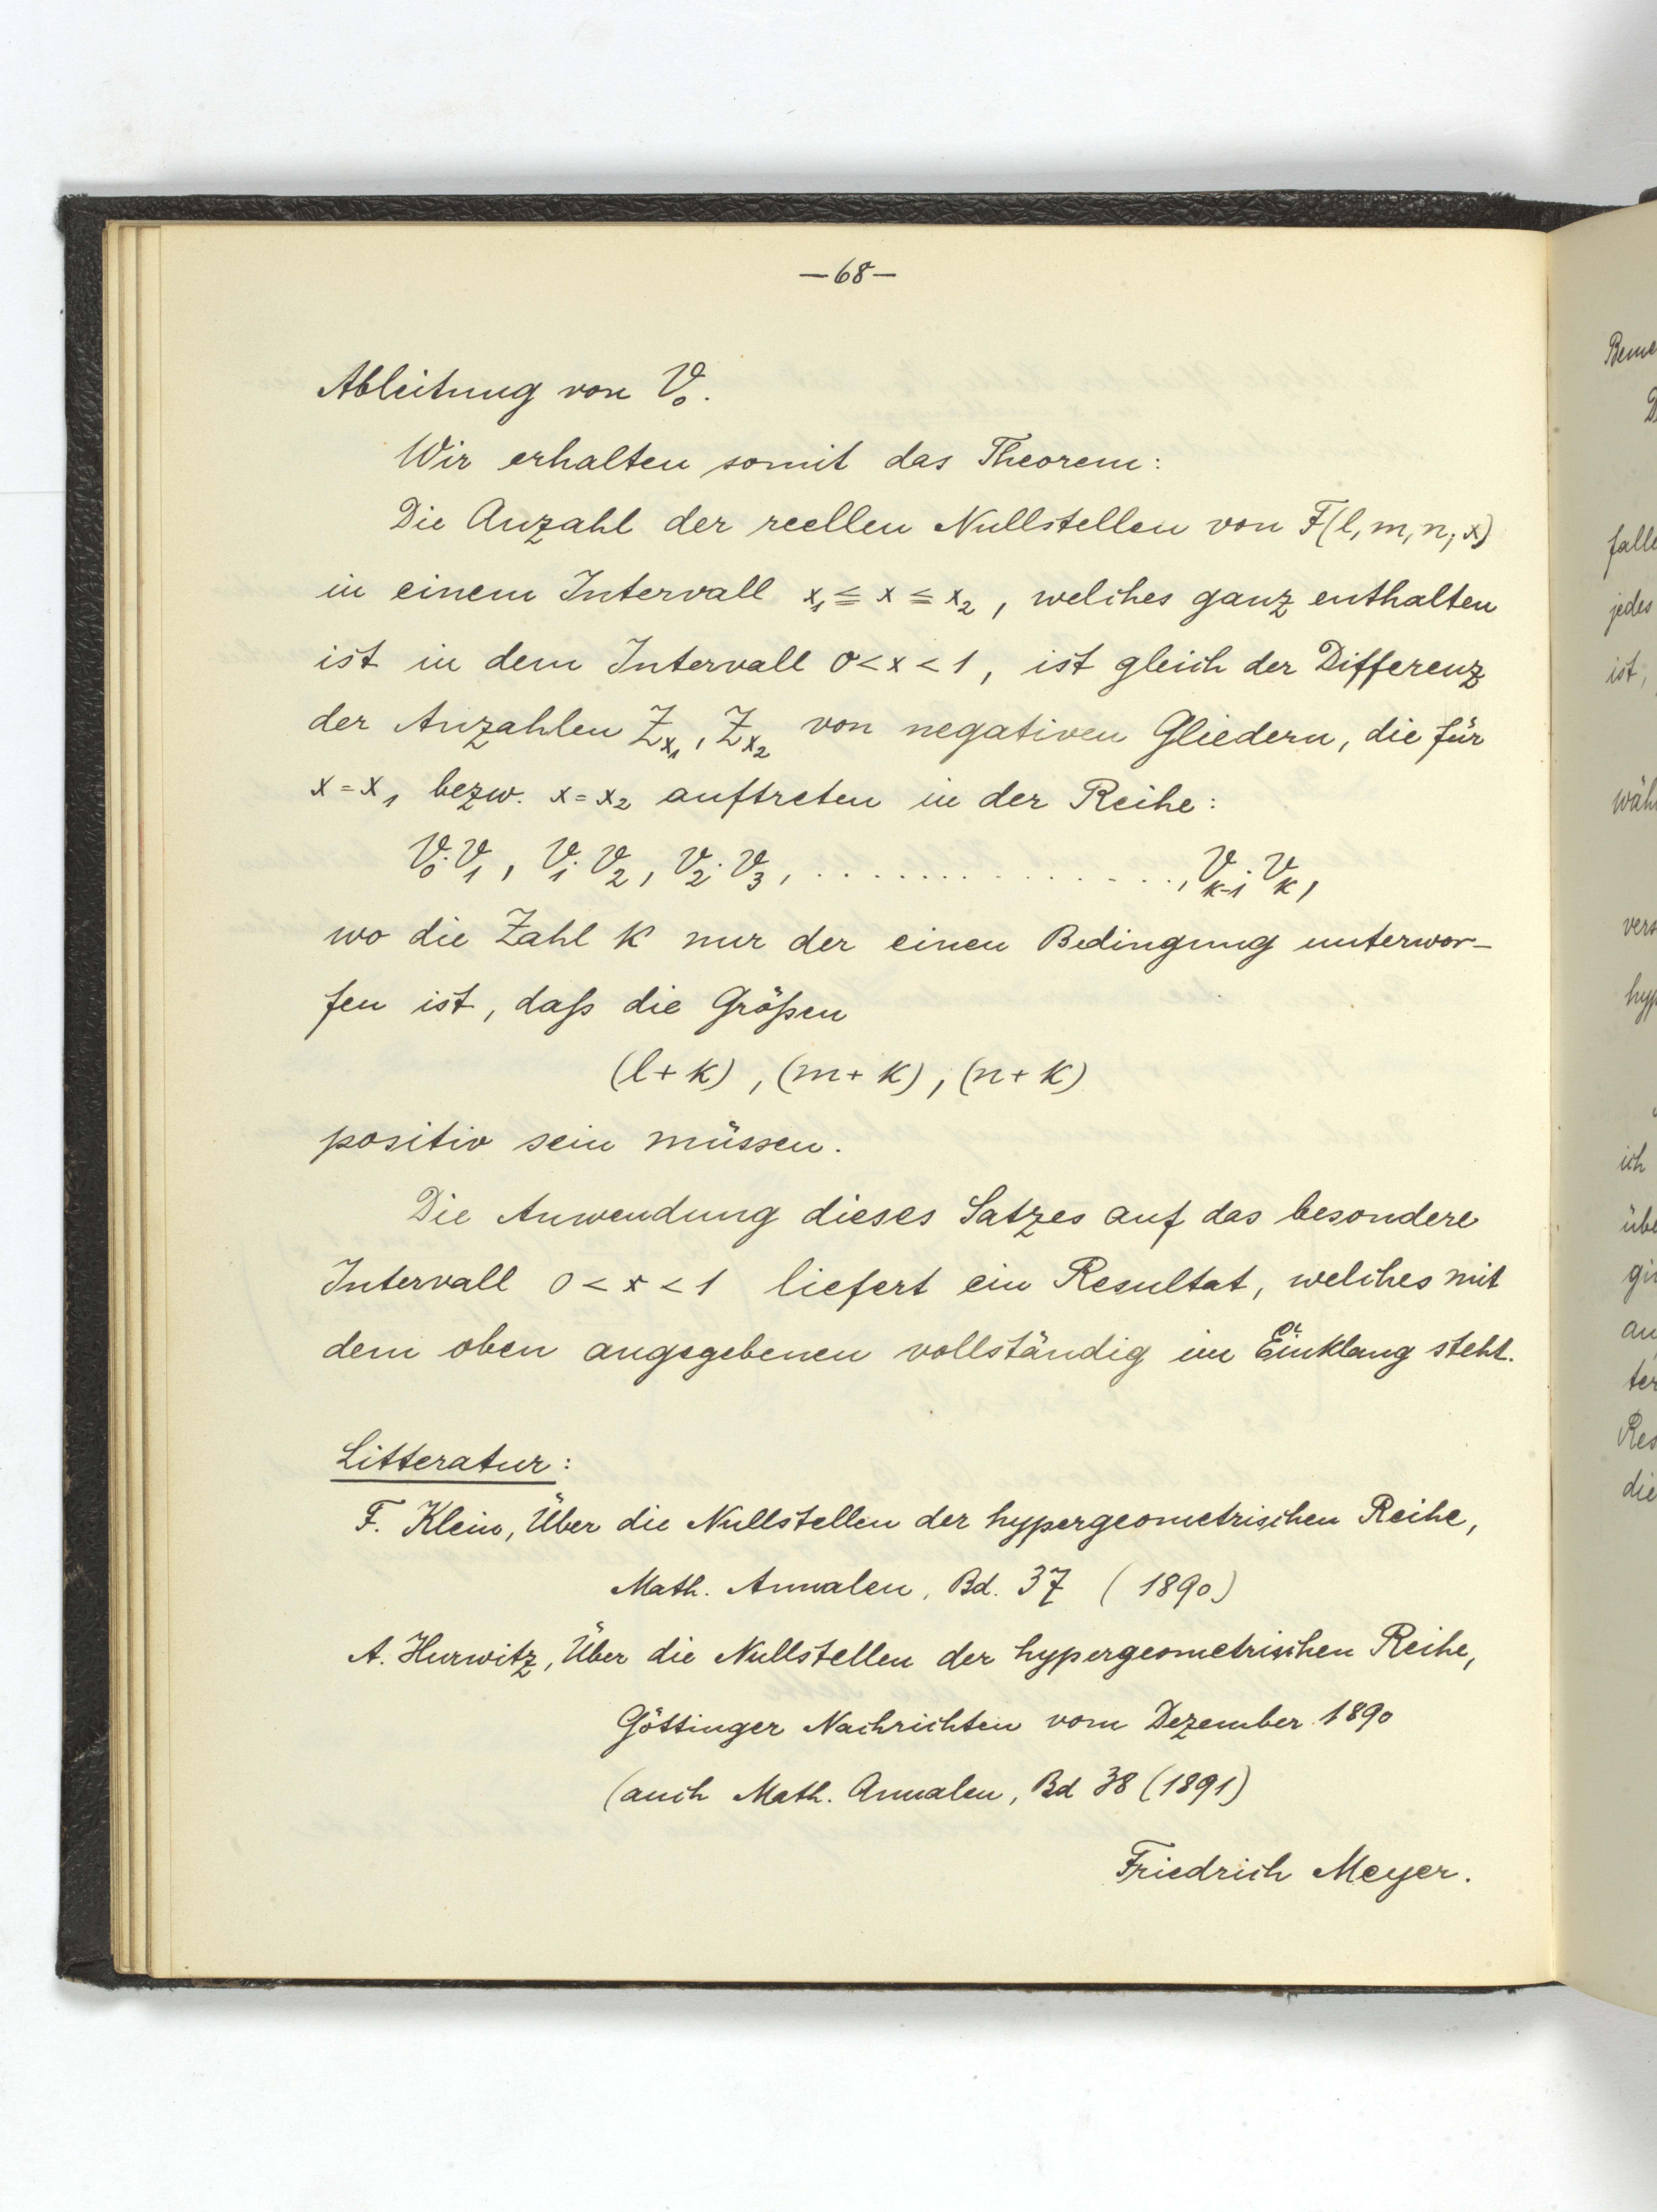 —68—
Ableitung von V₀.
Wir erhalten somit das Theorem:
Die Anzahl der reellen Nullstellen von F(l, m, n; x)
in einem Intervall x₁ ≦ x ≦ x₂, welches ganz enthalten
ist in dem Intervall 0 < x < 1, ist gleich der Differenz
der Anzahlen Z_{x₁}, Z_{x₂} von negativen Gliedern, die für
x = x₁ bezw. x = x₂ auftreten in der Reihe:
V₀·V₁, V₁·V₂, V₂·V₃, ................, V_{k-1}·V_k,
wo die Zahl k nur der einen Bedingung unterwor-
fen ist, daß die Größen
(l + k), (m + k), (n + k)
positiv sein müssen.
Die Anwendung dieses Satzes auf das besondere
Intervall 0 < x < 1 liefert ein Resultat, welches mit
dem oben angegebenen vollständig im Einklang steht.
Litteratur:
F. Klein, Über die Nullstellen der hypergeometrischen Reihe,
Math. Annalen, Bd. 37 (1890)
A. Hurwitz, Über die Nullstellen der hypergeometrischen Reihe,
Göttinger Nachrichten vom Dezember 1890
(auch Math. Annalen, Bd 38 (1891)
Friedrich Meyer.
falle
jedes
ist,
wäh
vers
hyp
ich
übe
gi
an
ter
Res
die